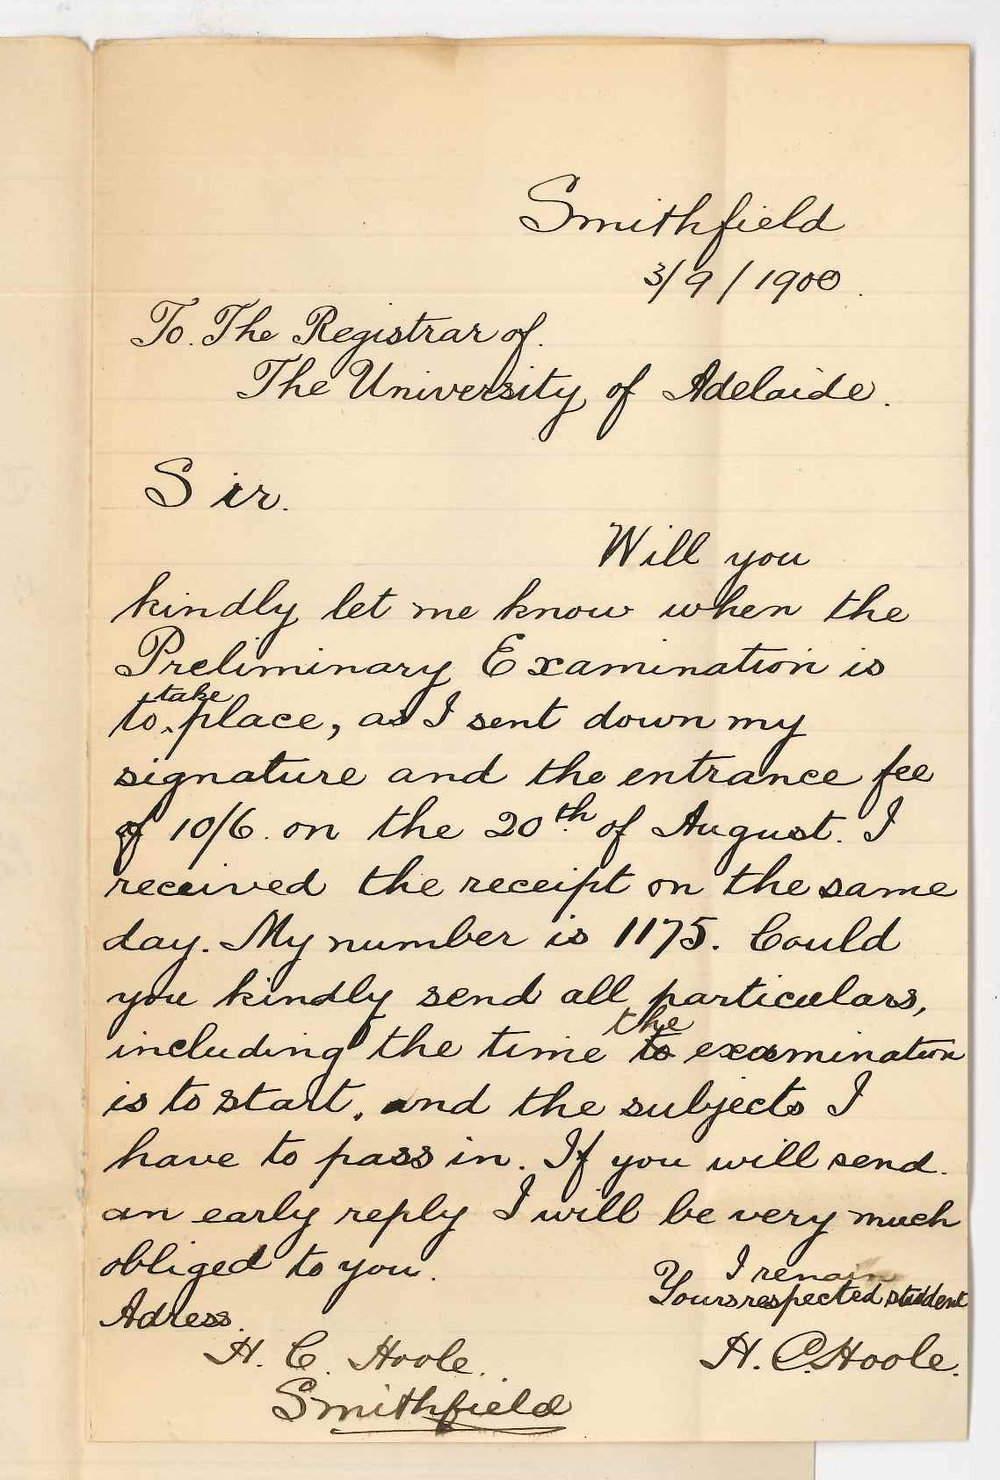 Smithfield
3/9/1900.
To. The Registrar of.
The University of Adelaide.
Sir.
Will you
kindly let me know when the
Preliminary Examination is
to take place, as I sent down my
signature and the entrance fee
of 10/6. on the 20th. of August. I
received the receipt on the same
day. My number is 1175. Could
you kindly send all particulars,
including the time the examination
is to start, and the subjects I
have to pass in. If you will send.
an early reply I will be very much
obliged to you.
I remain
Yours respected student
Adress.
H. C. Hoole.
H. C. Hoole.
Smithfield